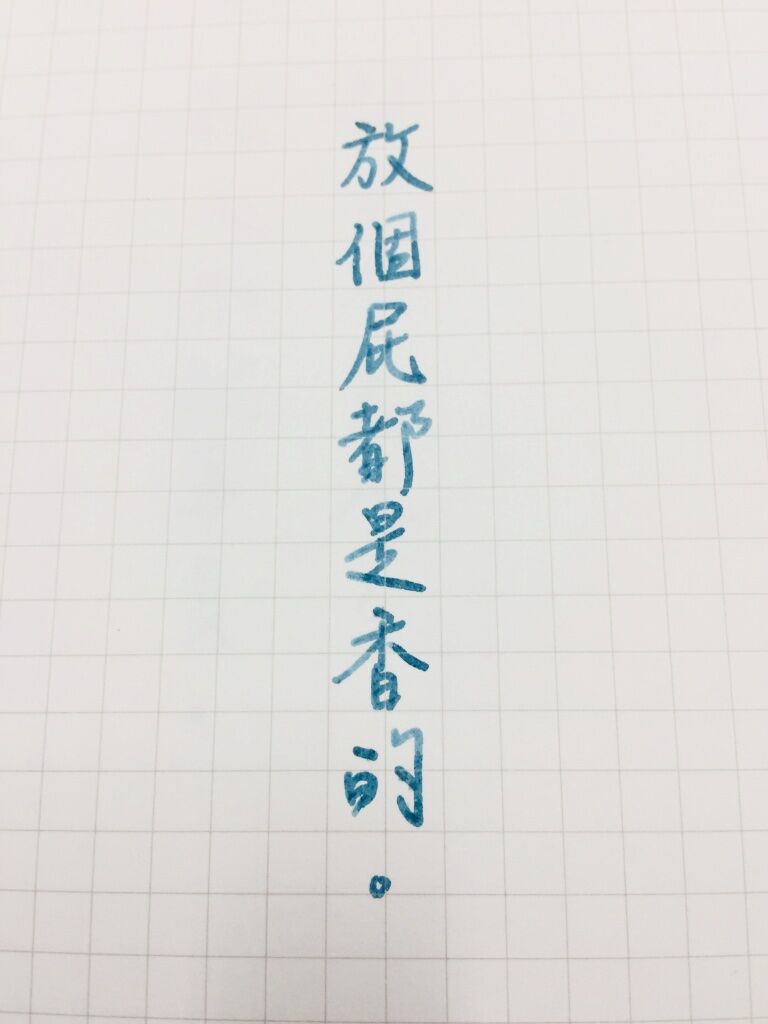 放個屁都是香的。